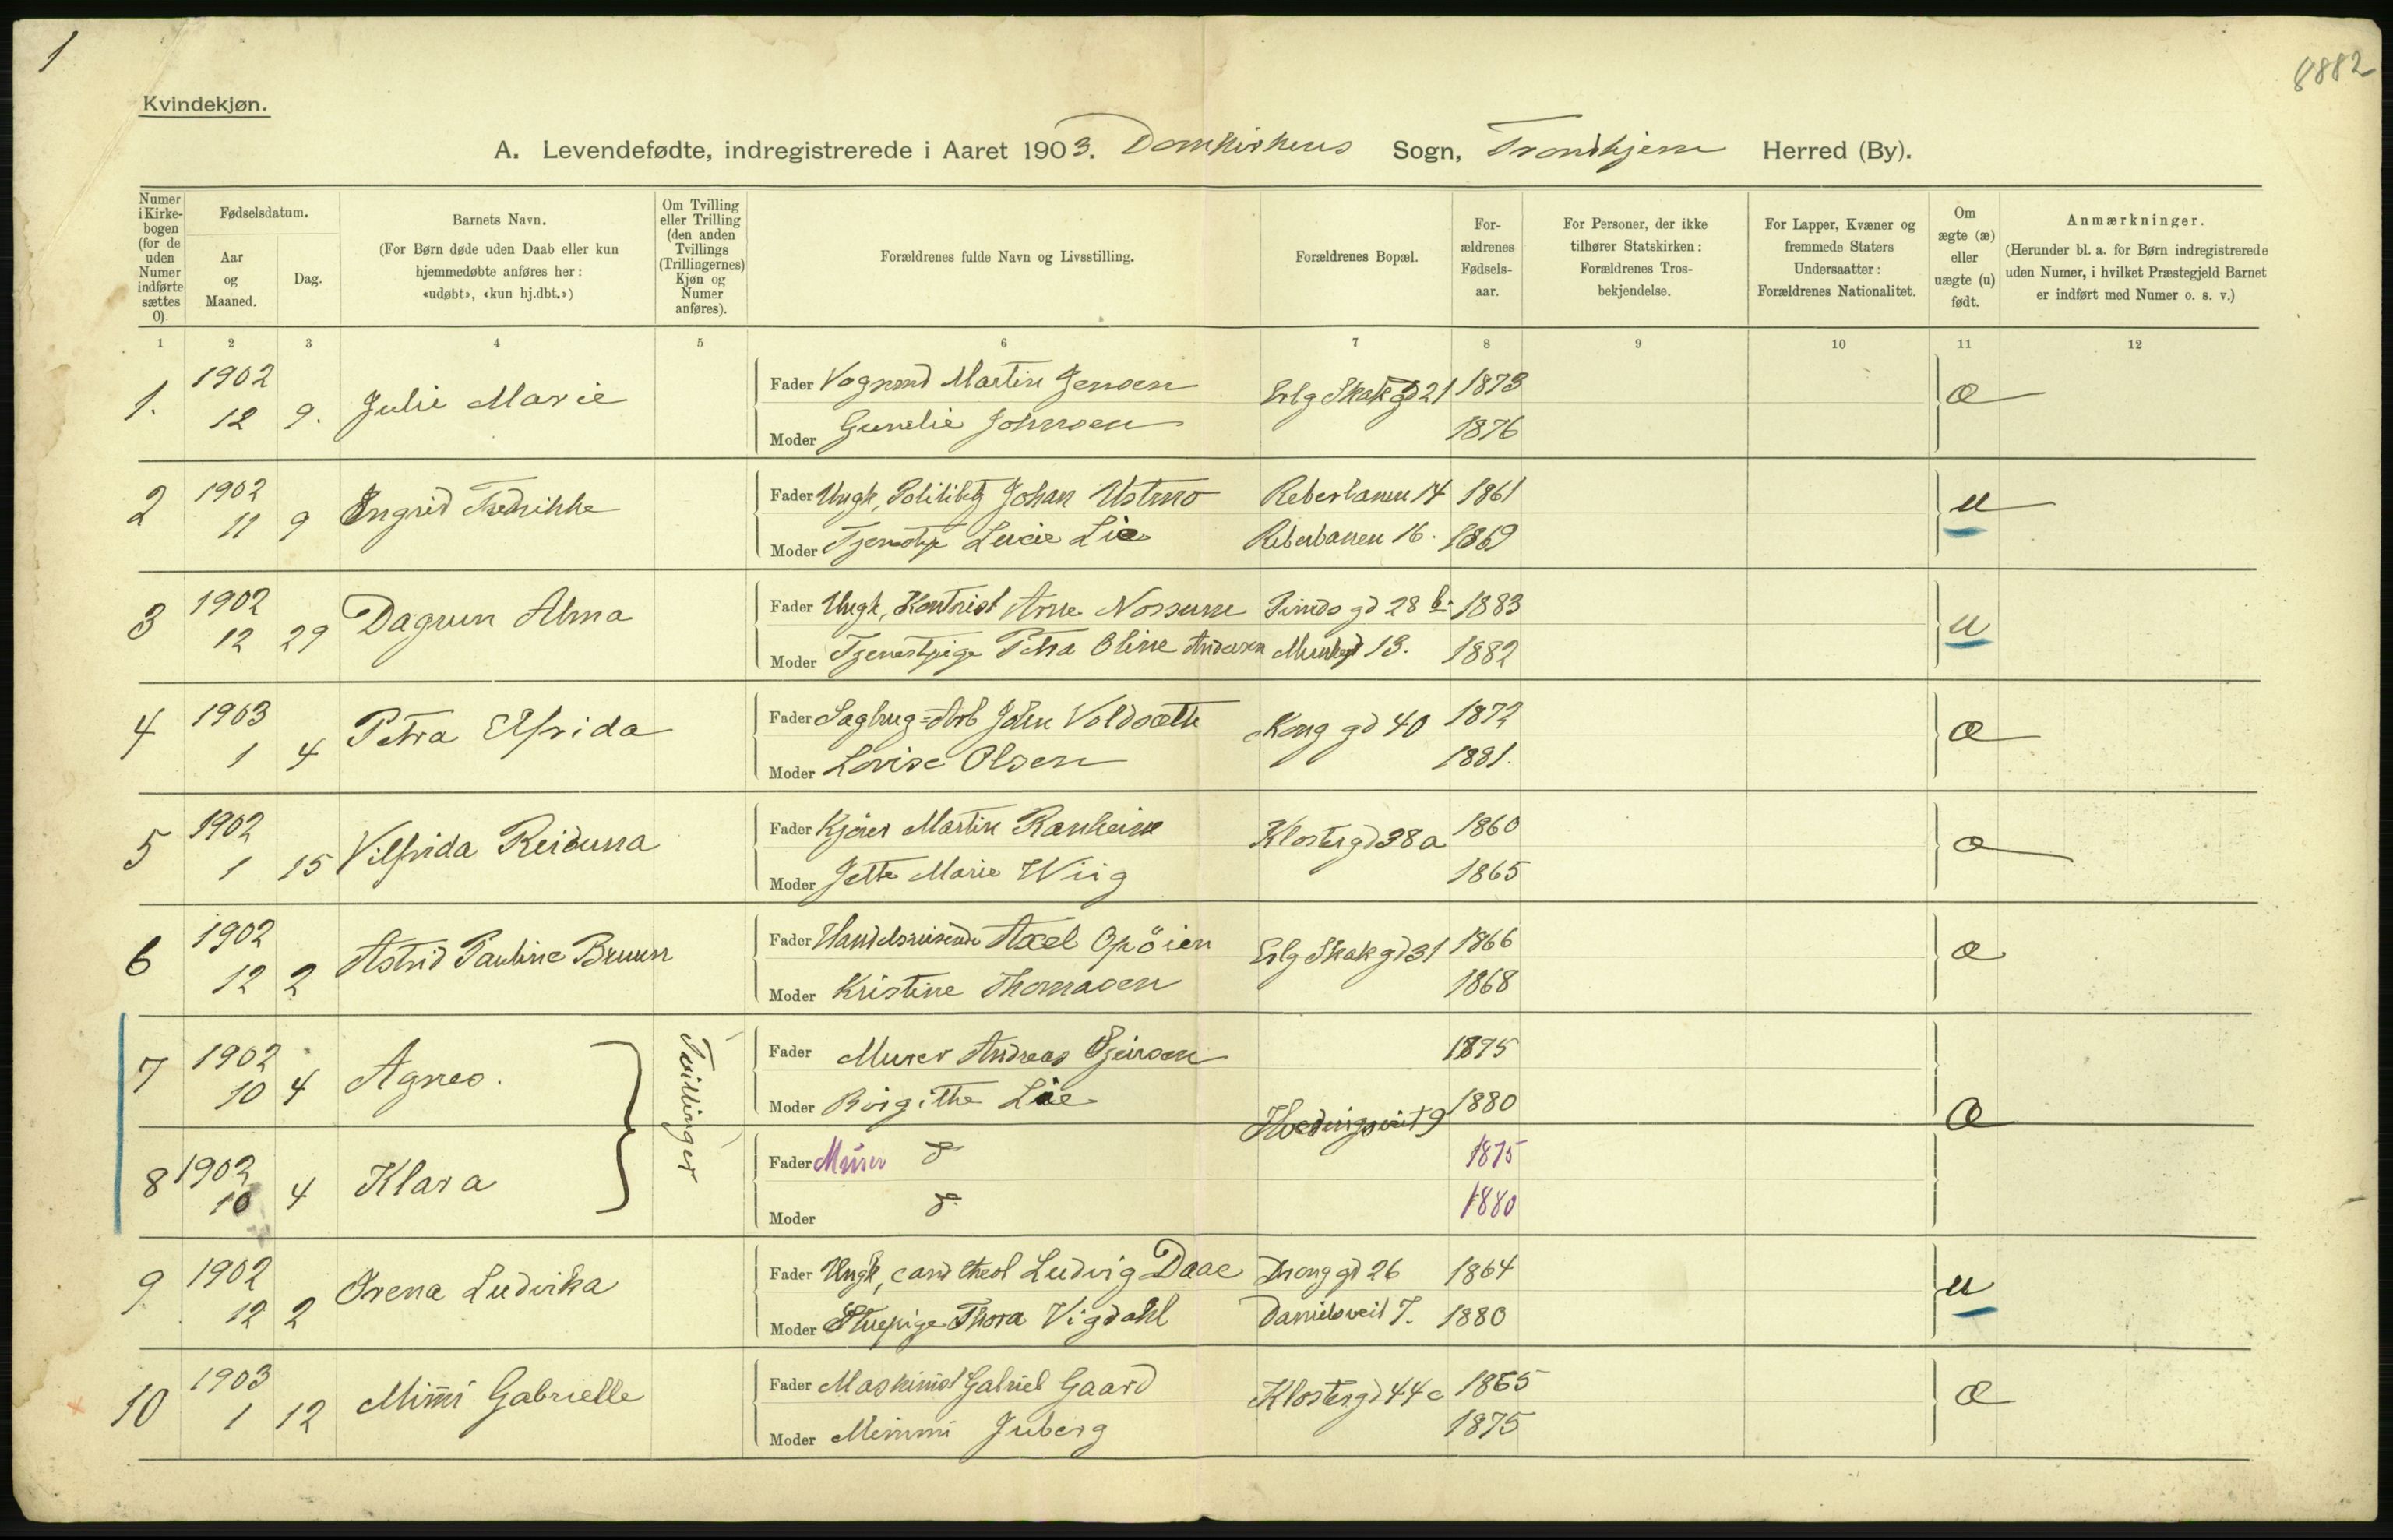 1
8882
Kvindekjøn.
A. Levendefødte, indregistrerede i Aaret 1903. Domkirkens Sogn, Trondhjem Herred (By).
Numer i Kirke-bogen (for de uden Numer indførte sættes 0).
Fødselsdatum.
Aar og Maaned.
Dag.
Barnets Navn.
(For Børn døde uden Daab eller kun hjemmedøbte anføres her: «udøbt», «kun hj.dbt.»)
Om Tvilling eller Trilling (den anden Tvillings (Trillingernes) Kjøn og Numer anføres).
Forældrenes fulde Navn og Livsstilling.
Forældrenes Bopæl.
For-ældrenes Fødsels-aar.
For Personer, der ikke tilhører Statskirken: Forældrenes Tros-bekjendelse.
For Lapper, Kvæner og fremmede Staters Undersaatter: Forældrenes Nationalitet.
Om ægte (æ) eller uægte (u) født.
Anmærkninger.
(Herunder bl. a. for Børn indregistrerede uden Numer, i hvilket Præstegjeld Barnet er indført med Numer o. s. v.)
1 2 3 4 5 6 7 8 9 10 11 12
1. 1902 12 9. Julie Marie
Fader Vognmd Martin Jensen Erlg Skak gd 21 1873 æ
Moder Gunelie Johnsen 1876
2 1902 11 9 Engrid Fredrikke
Fader Ungk, Politibtj Johan Ustmo Reberbanen 14 1861 u
Moder Tjenestp Lucie Lie Reberbanen 16. 1869
3 1902 12 29 Dagrun Alma
Fader Ungk, Kontrist Arne Nossum gd 28 b. 1883 u
Moder Tjenestpige Petra Oline Andersen Munkgd 13. 1882
4 1903 1 4 Petra Elfrida
Fader Sagbrug=Arb John Voldsætte Kong gd 40 1872 æ
Moder Lovise Olsen 1881.
5 1902 1 15 Vilfrida Reidunna
Fader Kjører Martin Ranheim Klostergd 38 a 1860 æ
Moder Jette Marie Wiig 1865
6 1902 12 2 Astrid Pauline Bruun
Fader Handelsreisende Axel Opöien Erlg Skak gd 31 1866 æ
Moder Kristine Thomasen 1868
7 1902 10 4 Agnes. Tvillinger
Fader Murer Andreas 1875
Moder Birgitte Lie 1880
9 æ
8 1902 10 4 Klara
Fader Murer d 1875
Moder d 1880
9 1902 12 2 Irena Ludvika
Fader Ungk, cand theol Ludvig Daae gd 26 1864 u
Moder Stuepige Thora Vigdahl Danielsveit 7. 1880
10 1903 1 12 Mimi Gabrielle
Fader Maskinist Gabriel Gaard Klostergd 44 c 1865 æ
Moder Mimmi Juberg 1875